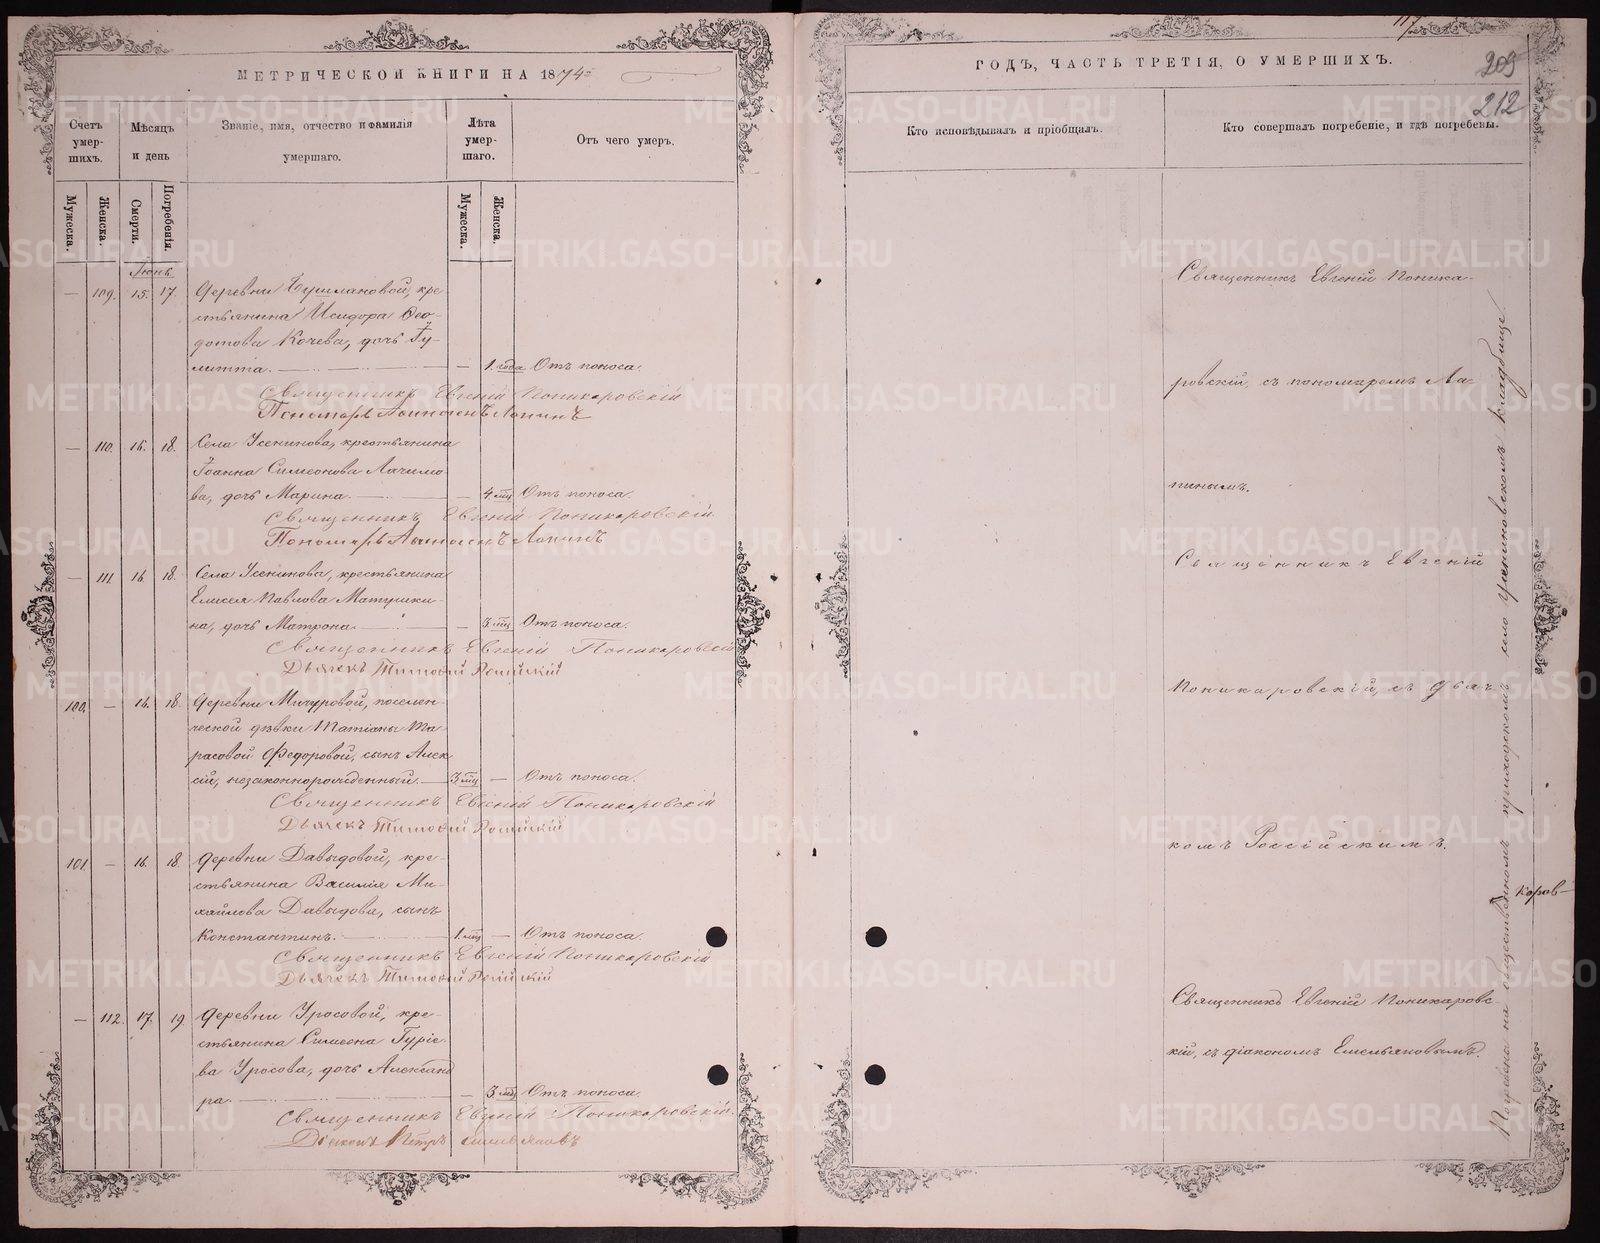 МЕТРИЧЕСКОЙ КНИГИ НА 1874
Счетъ умер-
шихъ.
Мѣсяцъ
и день
Званіе, имя, отчество и фамилія
умершаго.
Лѣта
умер-
шаго.
Отъ чего умеръ.
Мужеска.
Женска.
Смерти.
Погребенія.
Мужеска.
Женска.
Іюнь
— 109. 15. 17. Деревни Бушлановой, кре-
стьянина Исидора Ѳео-
дотова Кочева, дочь Іу-
литта. — — 1. года Отъ поноса.
Священникъ Евгеній Поникаровскій
Пономарь Лапинъ
— 110. 16. 18. Села Усенинова, крестьянина
Іоанна Симеонова Лачимо-
ва, дочь Марина. — — 4 мц Отъ поноса.
Священникъ Евгеній Поникаровскій
Пономарь Лапинъ
— 111. 16. 18. Села Усенинова, крестьянина
Елисея Павлова Матушки-
на, дочь Матрона. — — 3 мц Отъ поноса.
Священникъ Евгеній Поникаровскій
Дьячекъ Тимофей Россійскій
100. — 16. 18. Деревни Мичуровой, поселен-
ческой дѣвки Татіаны Та-
расовой Федоровой, сынъ Алек-
сій, незаконнорожденный. — 3 мц — Отъ поноса.
Священникъ Евгеній Поникаровскій
Дьячекъ Тимофей Россійскій
101. — 16. 18. Деревни Давыдовой, кре-
стьянина Василія Ми-
хайлова Давыдова, сынъ
Константинъ. — 1. мц — Отъ поноса.
Священникъ Евгеній Поникаровскій
Дьячекъ Тимофей Россійскій
— 112. 17. 19. Деревни Уросовой, кре-
стьянина Симеона Гуріе-
ва Уросова, дочь Александ
ра. — — 3 мц Отъ поноса.
Священникъ Евгеній Поникаровскій.
Діаконъ Петръ Емельяновъ
117
ГОДЪ, ЧАСТЬ ТРЕТІЯ, О УМЕРШИХЪ.
209
212
Кто исповѣдывалъ и пріобщалъ.
Кто совершалъ погребеніе, и гдѣ погребены.
Священникъ Евгеній Поника-
ровскій, съ пономаремъ Ла-
пинымъ.
Священникъ Евгеній
Поникаровскій, съ дьяч
комъ Россійскимъ.
Священникъ Евгеній Поникаровс
кій, съ діакономъ Емельяновымъ.
Погребены на общественномъ приходскомъ село Усениновскомъ кладбище.
коров
METRIKI.GASO-URAL.RU